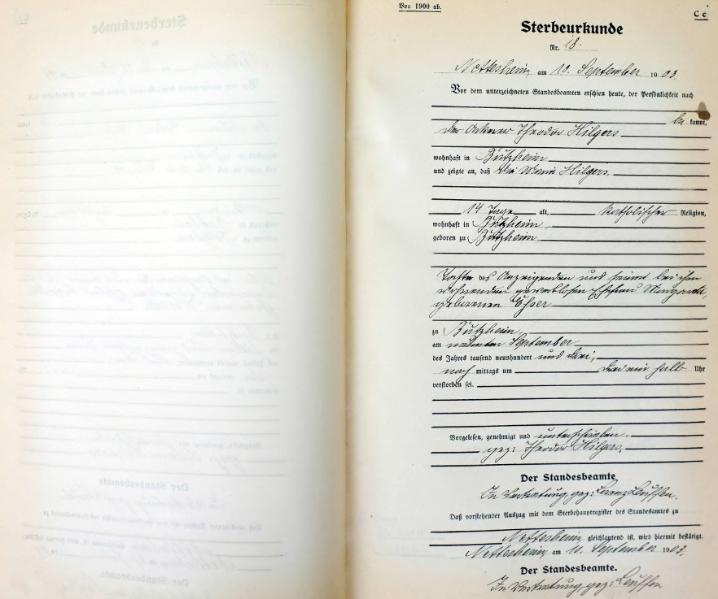 Vor 1900 ab.
C c
Sterbeurkunde
Nr. 18.
Nettersheim am 10. September 1903.
Vor dem unterzeichneten Standesbeamten erschien heute, der Persönlichkeit nach
be kannt,
der Ackerer Theodor Hilgers
wohnhaft in Bützheim
und zeigte an, daß die Maria Hilgers
14 Tage alt, katholischer Religion,
wohnhaft in Bützheim
geboren zu Bützheim
Tochter des Anzeigenden und seiner bei ihm
wohnenden gewerblosen Ehefrau
geborenen Esser
zu Bützheim
am neunten September
des Jahres tausend neunhundert und drei,
nach mittags um drei ein halb Uhr
verstorben sei.
Vorgelesen, genehmigt und unterschrieben.
gez: Theodor Hilgers.
Der Standesbeamte
In Vertretung, gez:
Daß vorstehender Auszug mit dem Sterbehauptregister des Standesamtes zu
Nettersheim gleichlautend ist, wird hiermit bestätigt.
Nettersheim am 11. September 1903.
Der Standesbeamte.
In Vertretung gez: